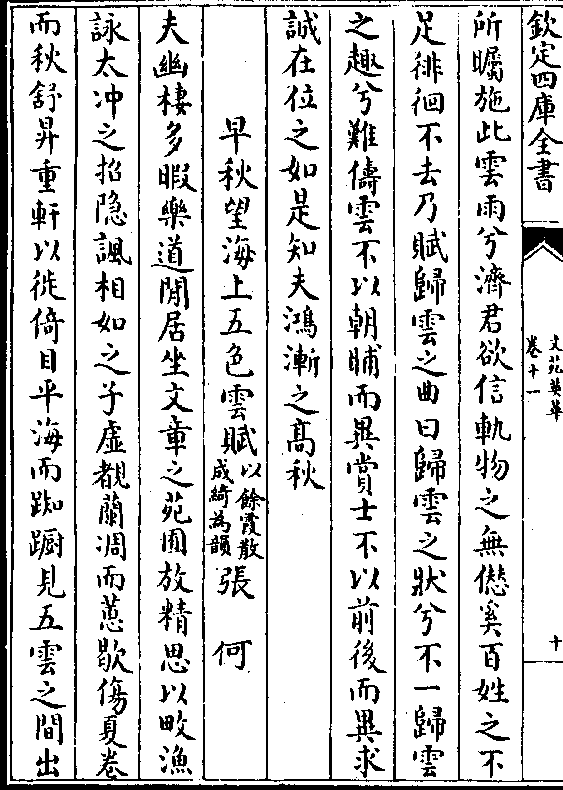 欽定四庫全書
文苑英華
卷十一
十
所矚施此雲雨兮濟君欲信軌物之無僁奚百姓之不
足徘徊不去乃賦歸雲之曲曰歸雲之狀兮不一歸雲
之趣兮難儔雲不以朝晡而異賞士不以前後而異求
誠在位之如是知夫鴻漸之髙秋
早秋望海上五色雲賦以餘霞散成綺為韻張何
夫幽棲多暇樂道閒居坐文章之苑囿放精思以畋漁
詠太冲之招隐諷相如之子虛覩蘭凋而蕙歇傷夏卷
而秋舒昇重軒以徙倚目平海而踟蹰見五雲之間出